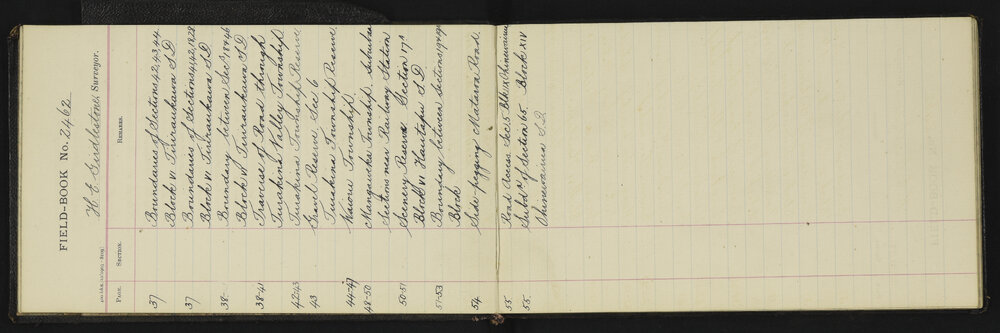 FIELD-BOOK No. 2462
H E Girdlestone Surveyor.
PAGE. SECTION. REMARKS.
37 Boundaries of Sections 42, 43, 44
Block VI Tiriraukawa S.D
37 Boundaries of Sections 41, 42, 18, 28
Block VI Tiriraukawa S.D
38 Boundary between Secs 18 & 46
Block VI Tiriraukawa S.D
38-41 Traverse of Road through
Turakina Valley Township
42-43 Turakina Township Reserve
43 Gravel Reserve Sec 6
Turakina Township Reserve
44-47 Township
48-50 Mangaweka Township Suburban
Sections near Railway Station
50-51 Scenery Reserve Section 17A
Block VI Hautapu S.D.
51-53 Boundary between Sections
Block
54 Side pegging Mataroa Road.
55 Road Access Sec. 5 Blk IX Ohinewairua
55 Subdn of Section 65 Block XIV
Ohinewairua S.D